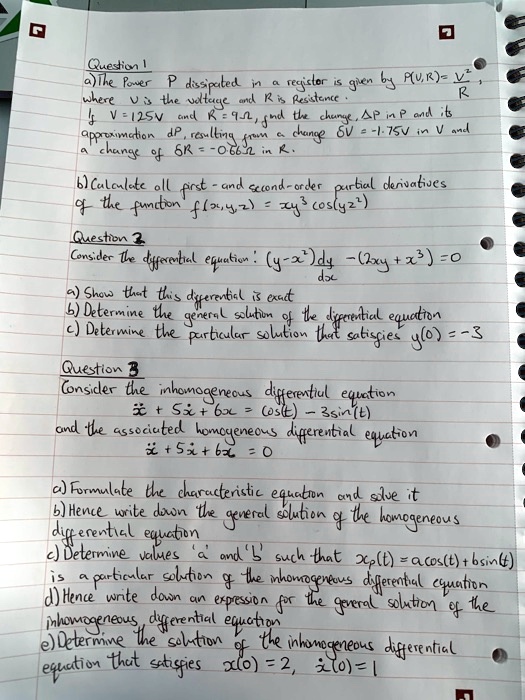 Question 1
a) The Power P dissipated in a resistor is given by P(V,R) = V²/R,
where V is the voltage and R is Resistance.
If V = 125V and R = 9Ω, find the change, ΔP in P and its
approximation dP, resulting from a change δV = -1.75V in V and
a change of δR = -0.66Ω in R.
b) Calculate all first - and second-order partial derivatives
of the function f(x,y,z) = xy³cos(yz²)
Question 2
Consider the differential equation: (y-x²)dy/dx - (2xy + x³) = 0
a) Show that this differential is exact
b) Determine the general solution of the differential equation
c) Determine the particular solution that satisfies y(0) = -3
Question 3
Consider the inhomogeneous differential equation
ẍ + 5ẋ + 6x = cos(t) - 3sin(t)
and the associated homogeneous differential equation
ẍ + 5ẋ + 6x = 0
a) Formulate the characteristic equation and solve it
b) Hence write down the general solution of the homogeneous
differential equation
c) Determine values 'a' and 'b' such that xₚ(t) = acos(t) + bsin(t)
is a particular solution of the inhomogeneous differential equation
d) Hence write down an expression for the general solution of the
inhomogeneous, differential equation
e) Determine the solution of the inhomogeneous differential
equation that satisfies x(0) = 2, ẋ(0) = 1